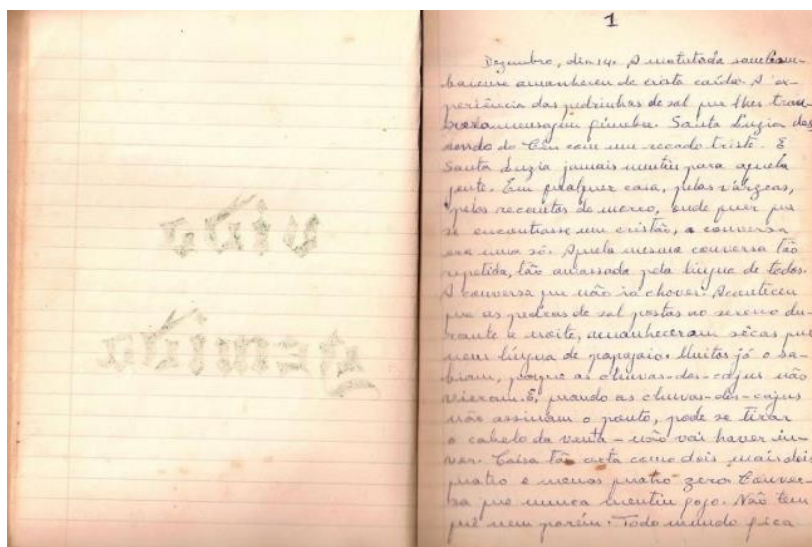 vida
gemida
1
Dezembro, dia 14. A matutada
amanheceu de crista caída. A ex-
periência das pedrinhas de sal que lhes trou-
xera mensagem fúnebre. Santa Luzia des
cendo do Céu com um recado triste. E
Santa Luzia jamais mentiu para aquela
gente. Em qualquer casa, pelas várgeas,
pelos recantos de cerca, onde quer que
se encontrasse um cristão, a conversa
era uma só. Aquela mesma conversa tão
repetida, tão amassada pela língua de todos.
A conversa que não ia chover. Aconteceu
que as pedras de sal postas ao sereno du-
rante a noite, amanheceram sêcas que
nem língua de papagaio. Muitos já o sa-
biam, porque as chuvas-dos-cajus não
vieram. E, quando as chuvas-dos-cajus
não assinam o ponto, pode se tirar
o cabelo da venta - não vai haver in-
ver. Coisa tão certa como dois mais dois
quatro e menos quatro zero. Conver-
sa que nunca mentiu gogo. Não tem
quê nem porém. Todo mundo fica